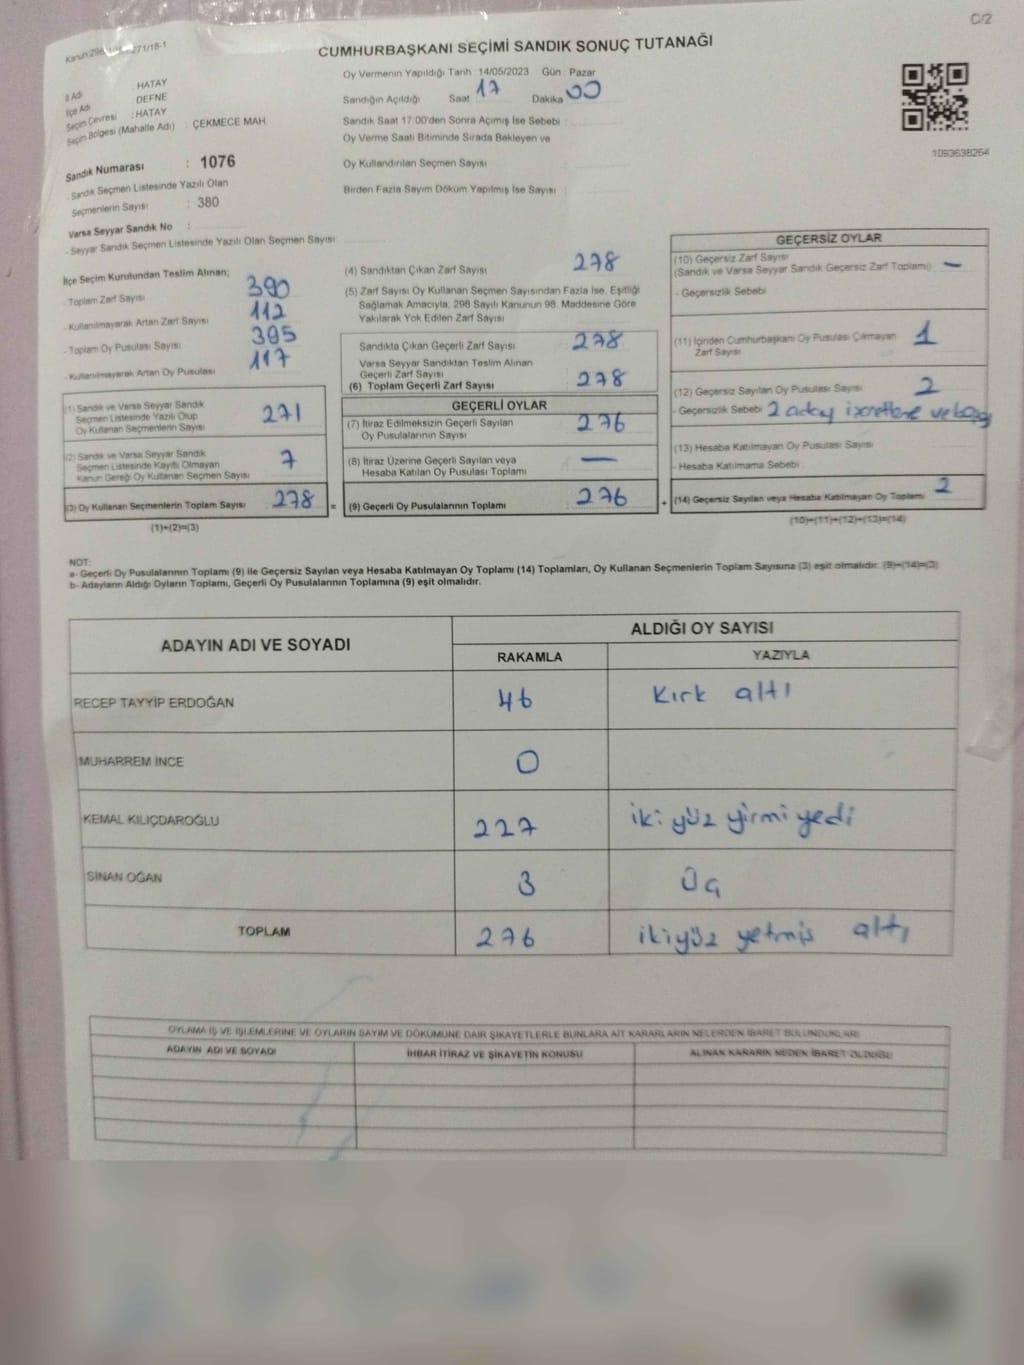 C/2
CUMHURBAŞKANI SEÇİMİ SANDIK SONUÇ TUTANAĞI
İl Adı : HATAY
İlçe Adı : DEFNE
Seçim Çevresi : HATAY
Seçim Bölgesi (Mahalle Adı) : ÇEKMECE MAH.
Sandık Numarası : 1076
- Sandık Seçmen Listesinde Yazılı Olan
Seçmenlerin Sayısı : 380
Varsa Seyyar Sandık No :
- Seyyar Sandık Seçmen Listesinde Yazılı Olan Seçmen Sayısı
Oy Vermenin Yapıldığı Tarih :14/05/2023 Gün : Pazar
Sandığın Açıldığı Saat 17 Dakika 00
Sandık Saat 17:00'den Sonra Açımış İse Sebebi :
Oy Verme Saati Bitiminde Sırada Bekleyen ve
Oy Kullandırılan Seçmen Sayısı :
Birden Fazla Sayım Döküm Yapılmış İse Sayısı :
1093638264
İlçe Seçim Kurulundan Teslim Alınan;
- Toplam Zarf Sayısı 390
- Kullanılmayarak Artan Zarf Sayısı 112
- Toplam Oy Pusulası Sayısı 395
- Kullanılmayarak Artan Oy Pusulası 117
(1) Sandık ve Varsa Seyyar Sandık
Seçmen Listesinde Yazılı Olup
Oy Kullanan Seçmenlerin Sayısı 271
(2) Sandık ve Varsa Seyyar Sandık
Seçmen Listesinde Kayıtlı Olmayan
Kanun Gereği Oy Kullanan Seçmen Sayısı 7
(3) Oy Kullanan Seçmenlerin Toplam Sayısı 278 =
(1)+(2)=(3)
(4) Sandıktan Çıkan Zarf Sayısı 278
(5) Zarf Sayısı Oy Kullanan Seçmen Sayısından Fazla İse, Eşitliği
Sağlamak Amacıyla, 298 Sayılı Kanunun 98. Maddesine Göre
Yakılarak Yok Edilen Zarf Sayısı
Sandıkta Çıkan Geçerli Zarf Sayısı 278
Varsa Seyyar Sandıktan Teslim Alınan
Geçerli Zarf Sayısı
(6) Toplam Geçerli Zarf Sayısı 278
GEÇERLİ OYLAR
(7) İtiraz Edilmeksizin Geçerli Sayılan
Oy Pusulalarının Sayısı 276
(8) İtiraz Üzerine Geçerli Sayılan veya
Hesaba Katılan Oy Pusulası Toplamı —
(9) Geçerli Oy Pusulalarının Toplamı 276 +
GEÇERSİZ OYLAR
(10) Geçersiz Zarf Sayısı
(Sandık ve Varsa Seyyar Sandık Geçersiz Zarf Toplamı) —
- Geçersizlik Sebebi
(11) İçinden Cumhurbaşkanı Oy Pusulası Çıkmayan
Zarf Sayısı 1
(12) Geçersiz Sayılan Oy Pusulası Sayısı 2
- Geçersizlik Sebebi 2 aday
(13) Hesaba Katılmayan Oy Pusulası Sayısı
- Hesaba Katılmama Sebebi
(14) Geçersiz Sayılan veya Hesaba Katılmayan Oy Toplamı 2
(10)+(11)+(12)+(13)=(14)
NOT:
a- Geçerli Oy Pusulalarının Toplamı (9) ile Geçersiz Sayılan veya Hesaba Katılmayan Oy Toplamı (14) Toplamları, Oy Kullanan Seçmenlerin Toplam Sayısına (3) eşit olmalıdır. (9)+(14)=(3)
b- Adayların Aldığı Oyların Toplamı, Geçerli Oy Pusulalarının Toplamına (9) eşit olmalıdır.
ADAYIN ADI VE SOYADI ALDIĞI OY SAYISI
RAKAMLA YAZIYLA
RECEP TAYYİP ERDOĞAN 46 Kırk altı
MUHARREM İNCE 0
KEMAL KILIÇDAROĞLU 227 iki yüz yirmi yedi
SİNAN OĞAN 3 Üç
TOPLAM 276 ikiyüz yetmis altı
OYLAMA İŞ VE İŞLEMLERİNE VE OYLARIN SAYIM VE DÖKÜMÜNE DAİR ŞİKAYETLERLE BUNLARA AİT KARARLARIN NELERDEN İBARET BULUNDUKLARI
ADAYIN ADI VE SOYADI İHBAR İTİRAZ VE ŞİKAYETİN KONUSU ALINAN KARARIN NEDEN İBARET OLDUĞU